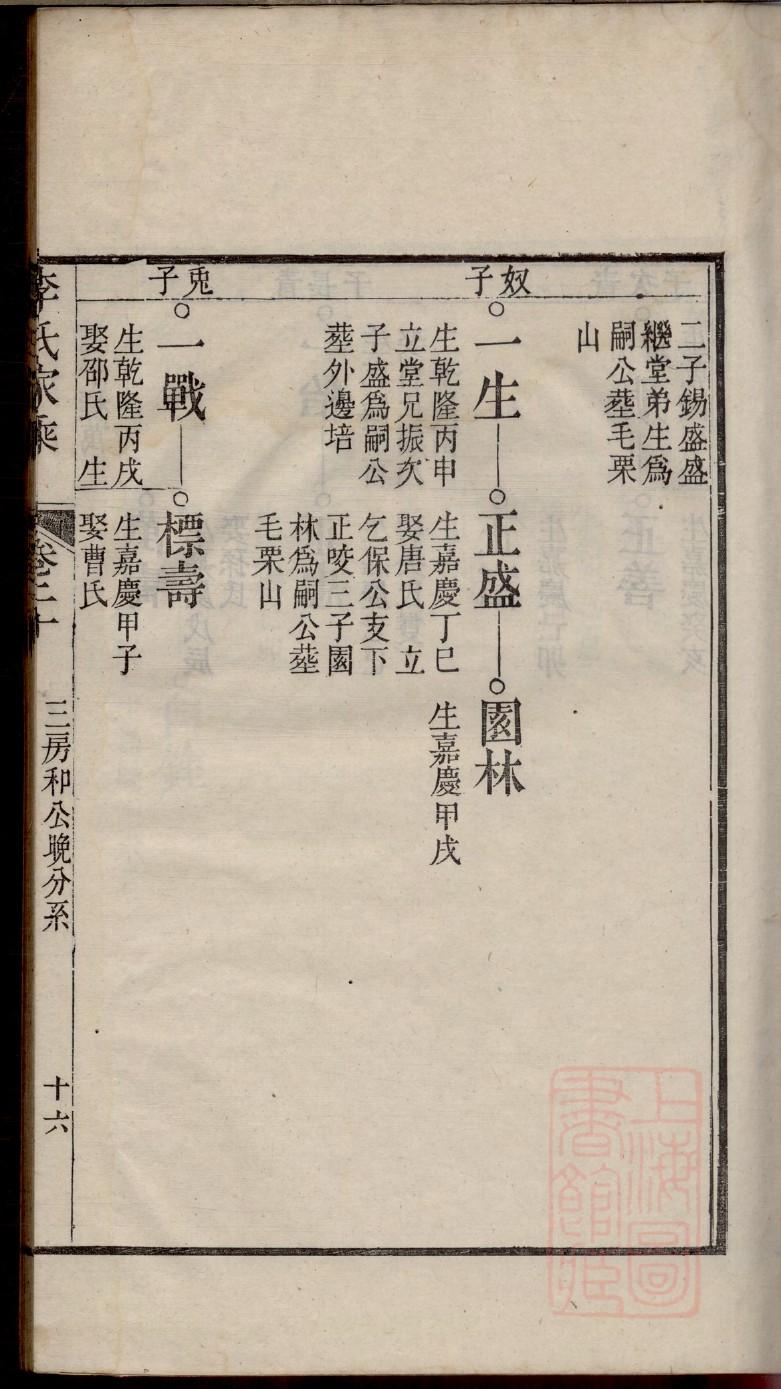 二子錫盛盛
繼堂弟生爲
嗣公塟毛栗
山
奴子
一生
生乾隆丙申
立堂兄振次
子盛爲嗣公
塟外邊培
正盛
生嘉慶丁巳
娶唐氏 立
乞保公支下
正咬三子園
林爲嗣公塟
毛栗山
園林
生嘉慶甲戌
兎子
一戰
生乾隆丙戌
娶邵氏 生
標壽
生嘉慶甲子
娶曹氏
李氏家乘
卷二十
三房和公晚分系
十六
上海圖
書館藏